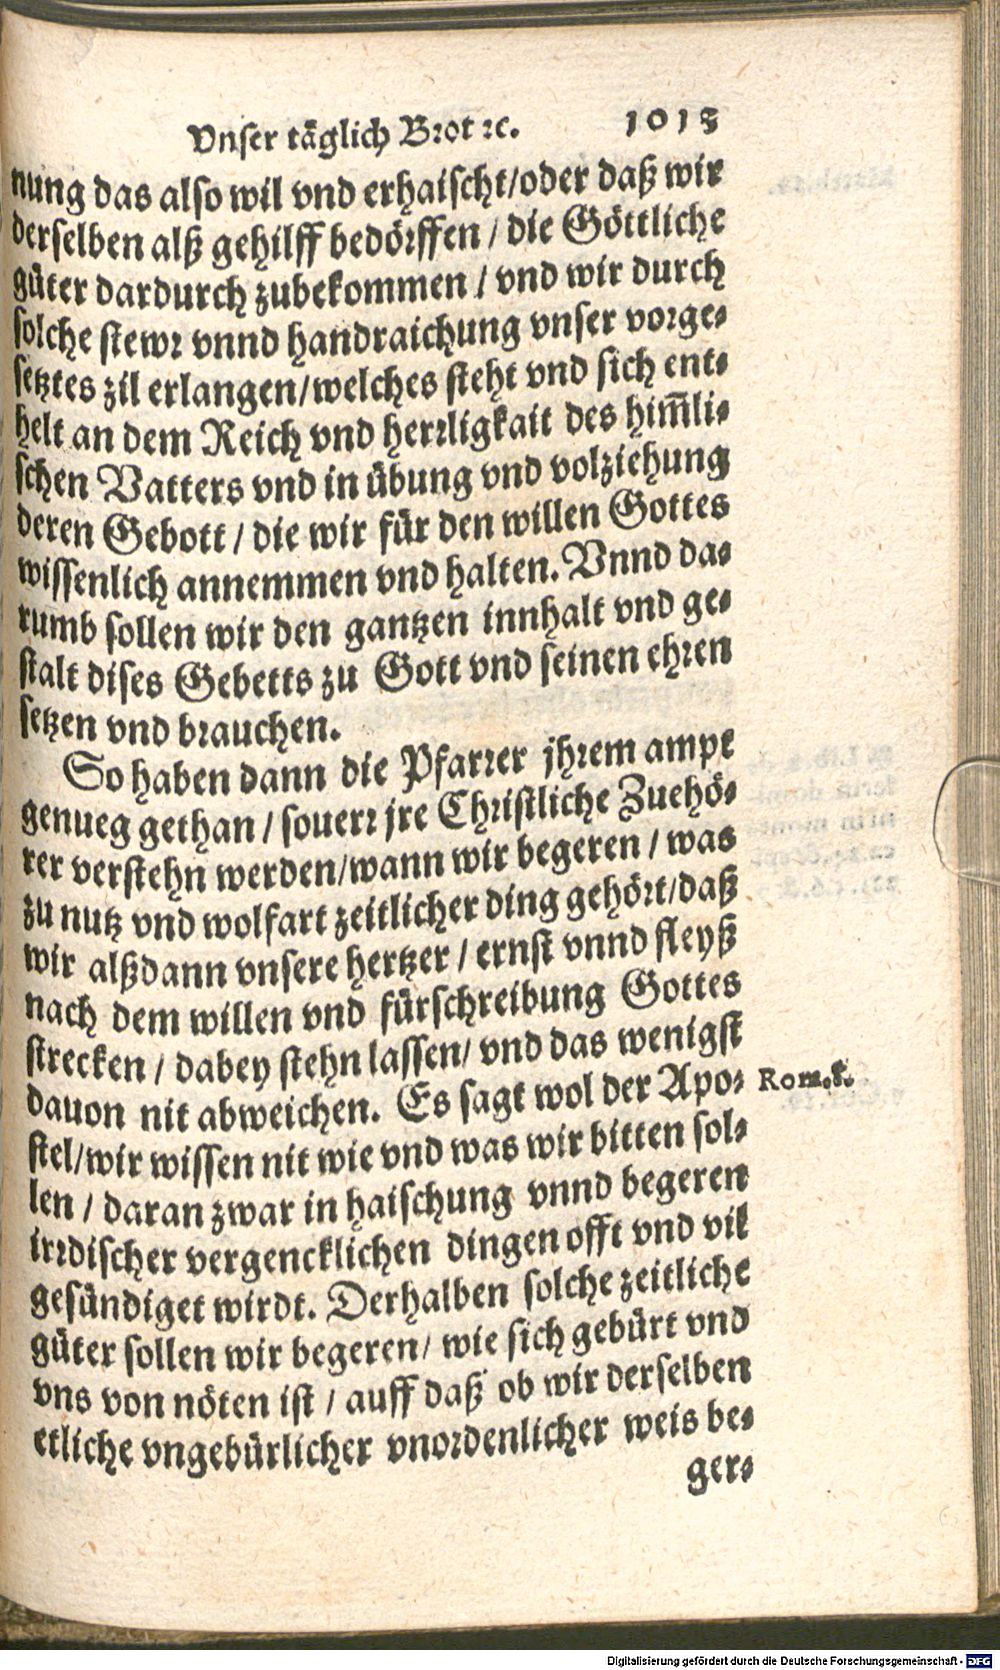 Vnser täglich Brot ꝛc. 1015
nung das also wil vnd erhaischt/oder daß wir
derselben alß gehilff bedörffen / die Göttliche
güter dardurch zubekommen / vnd wir durch
solche stewr vnnd handraichung vnser vorge-
setztes zil erlangen/welches steht vnd sich ent-
helt an dem Reich vnd herrligkait des him̃li-
schen Vatters vnd in übung vnd volziehung
deren Gebott / die wir für den willen Gottes
wissenlich annemmen vnd halten. Vnnd da-
rumb sollen wir den gantzen innhalt vnd ge-
stalt dises Gebetts zu Gott vnd seinen ehren
setzen vnd brauchen.
So haben dann die Pfarrer jhrem ampt
genueg gethan / souerr jre Christliche Zuehö-
rer verstehn werden/wann wir begeren / was
zu nutz vnd wolfart zeitlicher ding gehört/daß
wir alßdann vnsere hertzer / ernst vnnd fleyß
nach dem willen vnd fürschreibung Gottes
strecken / dabey stehn lassen/ vnd das wenigst
dauon nit abweichen. Es sagt wol der Apo-
Rom.8.
stel/wir wissen nit wie vnd was wir bitten sol-
len / daran zwar in haischung vnnd begeren
irrdischer vergencklichen dingen offt vnd vil
gesündiget wirdt. Derhalben solche zeitliche
güter sollen wir begeren/ wie sich gebürt vnd
vns von nöten ist / auff daß ob wir derselben
etliche vngebürlicher vnordenlicher weis be-
ger-
Digitalisierung gefördert durch die Deutsche Forschungsgemeinschaft - DFG